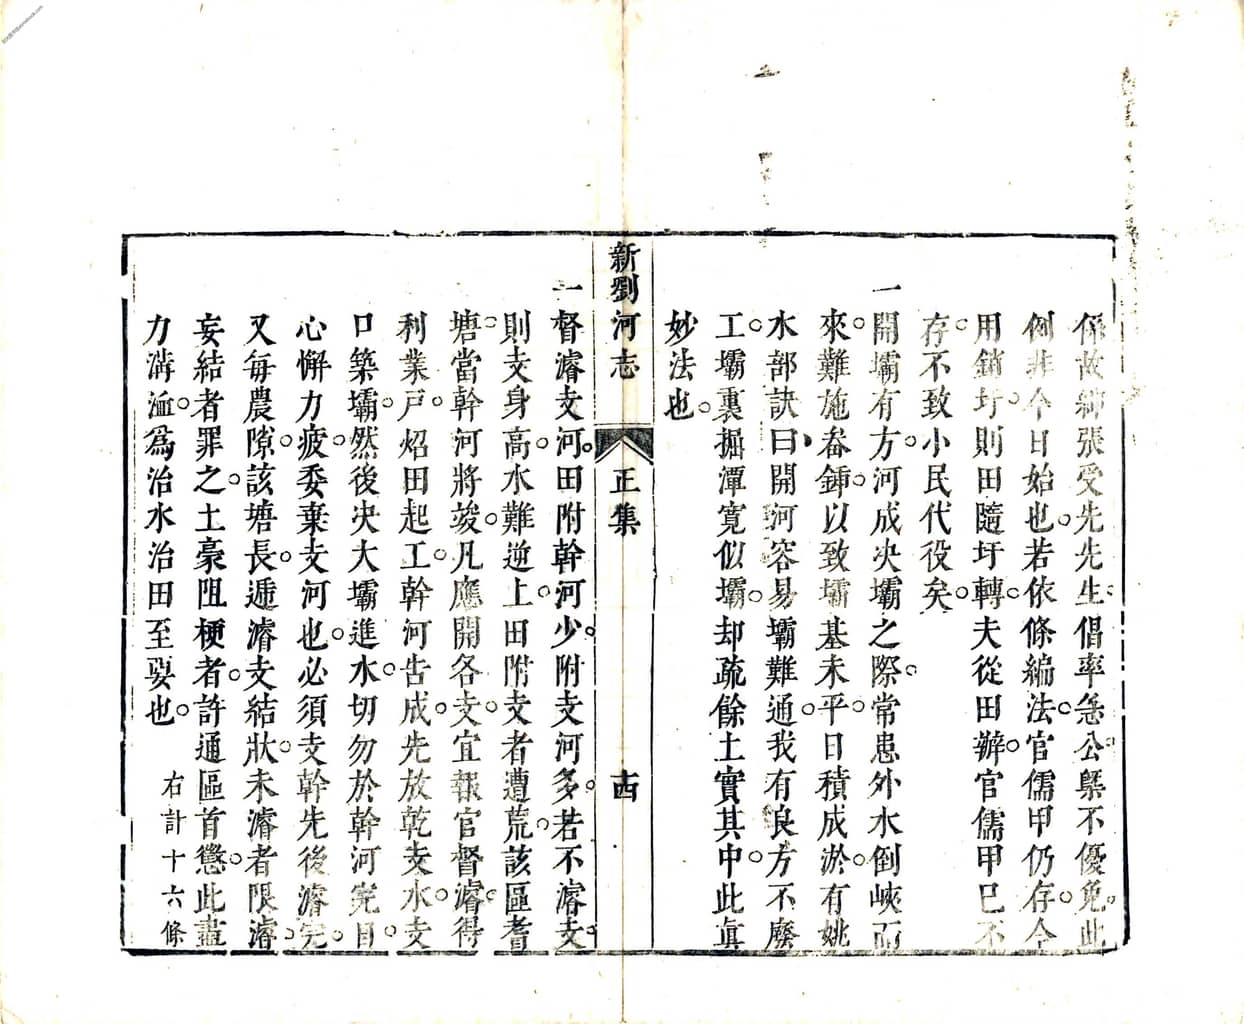 係故紳張受先先生倡率急公槩不優免此
例非今日始也若依條編法官儒甲仍存今
用銷圩則田隨圩轉夫從田辦官儒甲已不
存不致小民代役矣
一開壩有方河成决壩之際常患外水倒峽而
來難施畚鍤以致壩基未平日積成淤有姚
水部訣曰開河容易壩難通我有良方不廢
工壩裏掘潭寛似壩却疏餘土實其中此眞
妙法也
新劉河志 正集 十四
一督濬支河田附幹河少附支河多若不濬支
則支身高水難逆上田附支者遭荒該區耆
塘當幹河將竣凡應開各支宜報官督濬得
利業戸炤田起工幹河告成先放乾支水支
口築壩然後决大壩進水切勿於幹河完日
心懈力疲委棄支河也必須支幹先後濬完
又每農隙該塘長逓濬支結狀未濬者限濬
妄結者罪之土豪阻梗者許通區首懲此盡
力溝洫爲治水治田至要也
右計十六條